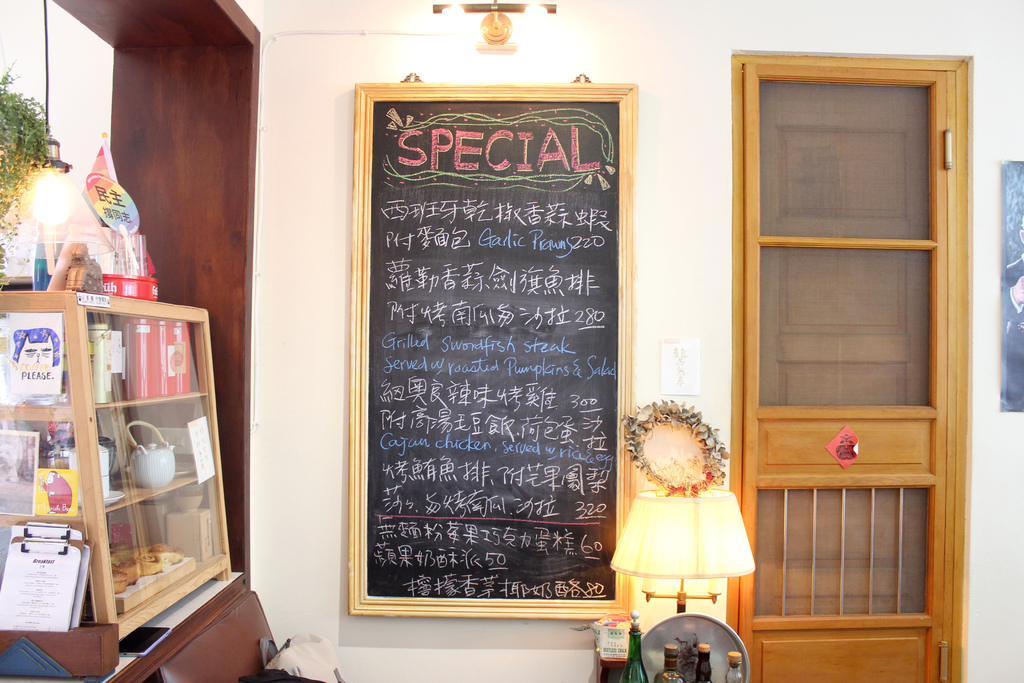 SPECIAL
西班牙乾椒香蒜蝦
附麵包 Garlic Prawns 220
蘿勒香蒜劍旗魚排
附烤南瓜&沙拉 280
Grilled swordfish steak
served w roasted Pumpkins & Salad
紐奧良辣味烤雞 300
附高湯毛豆飯,荷包蛋,沙拉
Cajan chicken, served w rice, egg
烤鮪魚排,附芒果鳳梨
莎莎&烤南瓜.沙拉 320
無麵粉莓果巧克力蛋糕 60
蘋果奶酥派 50
檸檬香草椰奶酪 80
民主
挺同志
PLEASE.
Breakfast